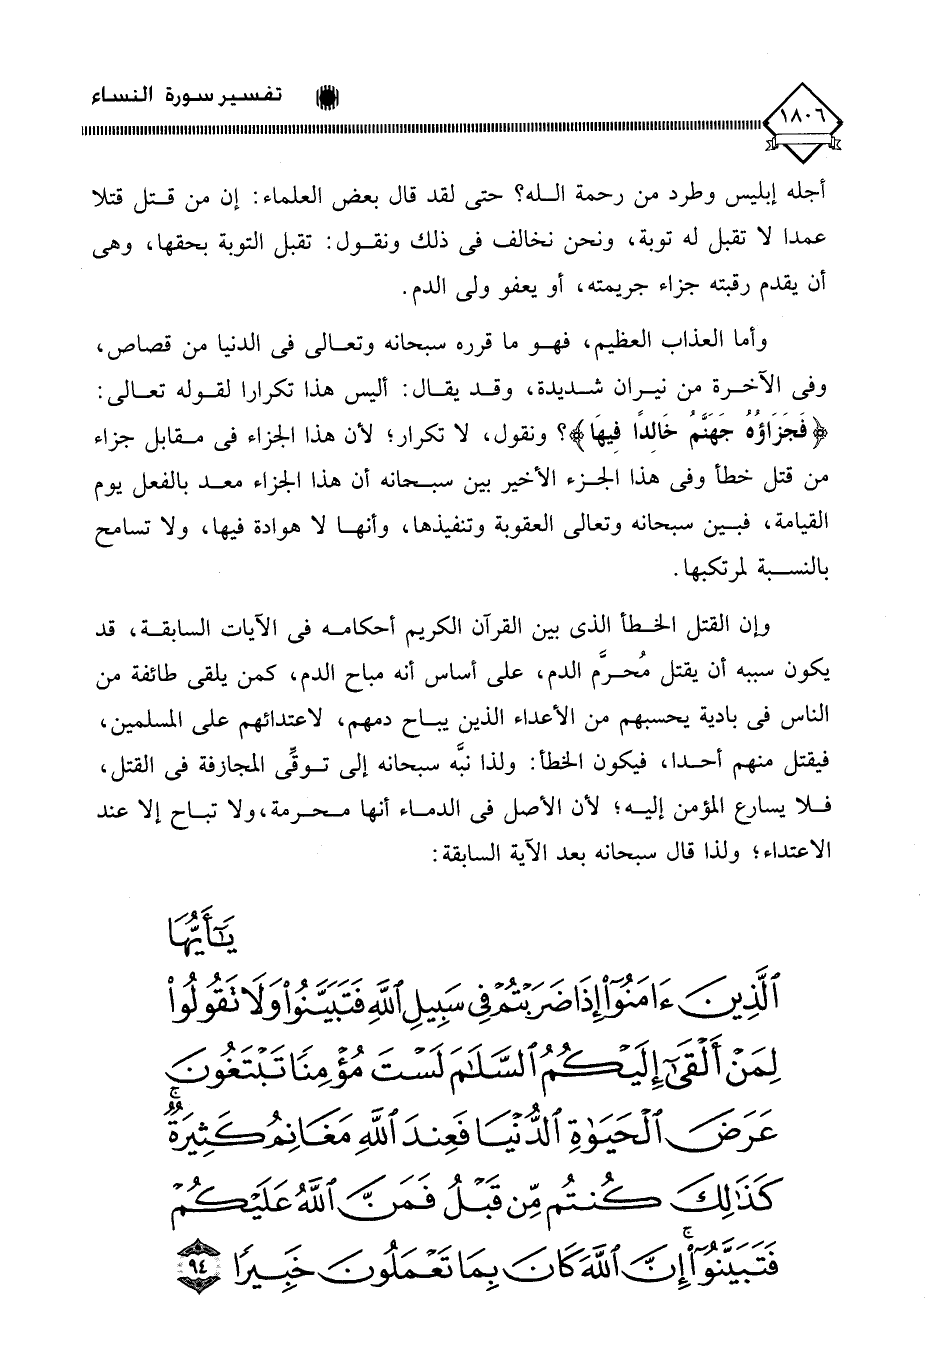 تفسير سورة النساء
١٨٠٦
أجله إبليس وطرد من رحمة الله؟ حتى لقد قال بعض العلماء: إن من قتل قتلا
عمدا لا تقبل له توبة، ونحن نخالف فى ذلك ونقول: تقبل التوبة بحقها، وهى
أن يقدم رقبته جزاء جريمته، أو يعفو ولى الدم.
وأما العذاب العظيم، فهو ما قرره سبحانه وتعالى فى الدنيا من قصاص،
وفى الآخرة من نيران شديدة، وقد يقال: أليس هذا تكرارا لقوله تعالى:
﴿فَجَزَاؤُهُ جَهَنَّمُ خَالِدًا فِيهَا﴾؟ ونقول، لا تكرار؛ لأن هذا الجزاء فى مقابل جزاء
من قتل خطأ وفى هذا الجزء الأخير بين سبحانه أن هذا الجزاء معد بالفعل يوم
القيامة، فبين سبحانه وتعالى العقوبة وتنفيذها، وأنها لا هوادة فيها، ولا تسامح
بالنسبة لمرتكبها.
وإن القتل الخطأ الذى بين القرآن الكريم أحكامه فى الآيات السابقة، قد
يكون سببه أن يقتل مُحرَّم الدم، على أساس أنه مباح الدم، كمن يلقى طائفة من
الناس فى بادية يحسبهم من الأعداء الذين يباح دمهم، لاعتدائهم على المسلمين،
فيقتل منهم أحدا، فيكون الخطأ: ولذا نبَّه سبحانه إلى توقِّى المجازفة فى القتل،
فلا يسارع المؤمن إليه؛ لأن الأصل فى الدماء أنها محرمة، ولا تباح إلا عند
الاعتداء؛ ولذا قال سبحانه بعد الآية السابقة:
يَٰٓأَيُّهَا
ٱلَّذِينَ ءَامَنُوٓا۟ إِذَا ضَرَبْتُمْ فِى سَبِيلِ ٱللَّهِ فَتَبَيَّنُوا۟ وَلَا تَقُولُوا۟
لِمَنْ أَلْقَىٰٓ إِلَيْكُمُ ٱلسَّلَٰمَ لَسْتَ مُؤْمِنًا تَبْتَغُونَ
عَرَضَ ٱلْحَيَوٰةِ ٱلدُّنْيَا فَعِندَ ٱللَّهِ مَغَانِمُ كَثِيرَةٌ ۚ
كَذَٰلِكَ كُنتُم مِّن قَبْلُ فَمَنَّ ٱللَّهُ عَلَيْكُمْ
فَتَبَيَّنُوٓا۟ ۚ إِنَّ ٱللَّهَ كَانَ بِمَا تَعْمَلُونَ خَبِيرًا ٩٤